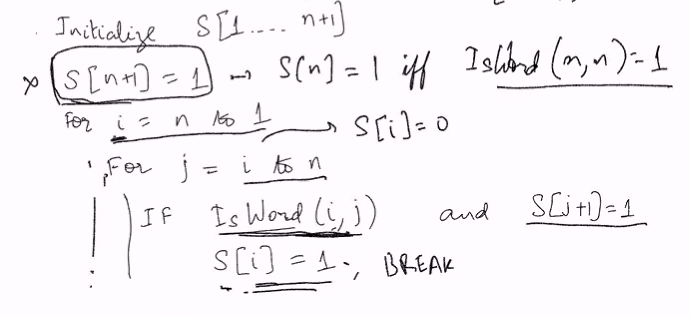 Initialize S[1.... n+1]
S[n+1] = 1 → S[n] = 1 iff IsWord (n,n) = 1
For i = n to 1 → S[i] = 0
For j = i to n
IF IsWord (i,j) and S[j+1] = 1
S[i] = 1., BREAK